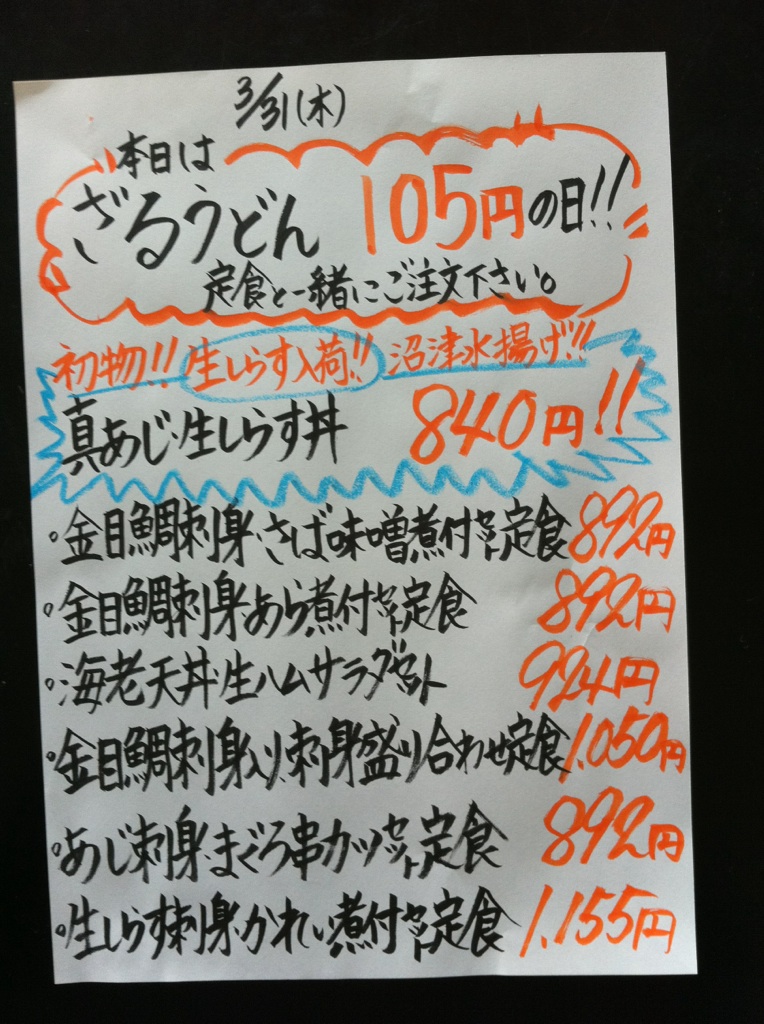 3/31(木)
本日は
ざるうどん 105円の日!!
定食と一緒にご注文下さい。
初物!! 生しらす入荷!! 沼津水揚げ!!
真あじ・生しらす丼 840円!!
・金目鯛刺身・さば味噌煮付セット定食 892円
・金目鯛刺身・あら煮付セット定食 892円
・海老天丼・生ハムサラダセット 924円
・金目鯛刺身入り刺身盛り合わせ定食 1.050円
・あじ刺身・まぐろ串カツセット定食 892円
・生しらす刺身・かれい煮付セット定食 1.155円